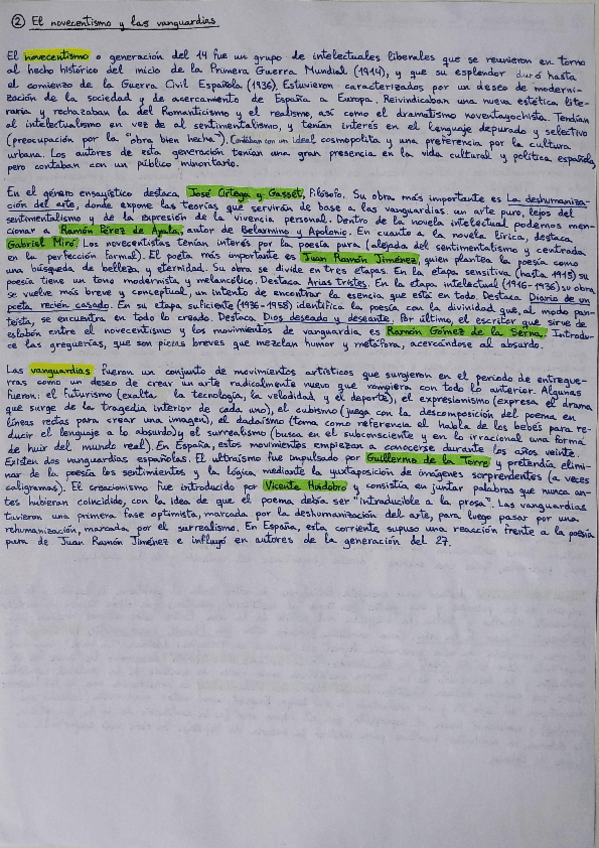 ② El novecentismo y las vanguardias
El novecentismo o generación del 14 fue un grupo de intelectuales liberales que se reunieron en torno
al hecho histórico del inicio de la Primera Guerra Mundial (1914), y que su esplendor duró hasta
el comienzo de la Guerra Civil Española (1936). Estuvieron caracterizados por un deseo de moderni-
zación de la sociedad y de acercamiento de España a Europa. Reivindicaban una nueva estética lite-
raria y rechazaban la del Romanticismo y el realismo, así como el dramatismo noventayochista. Tendían
al intelectualismo en vez de al sentimentalismo, y tenían interés en el lenguaje depurado y selectivo
(preocupación por la "obra bien hecha"). Contaban con un ideal cosmopolita y una preferencia por la cultura
urbana. Los autores de esta generación tenían una gran presencia en la vida cultural y política española,
pero contaban con un público minoritario.
En el género ensayístico destaca José Ortega y Gasset, filósofo. Su obra más importante es La deshumaniza-
ción del arte, donde expone las teorías que servirán de base a las vanguardias: un arte puro, lejos del
sentimentalismo y de la expresión de la vivencia personal. Dentro de la novela intelectual podemos men-
cionar a Ramón Pérez de Ayala, autor de Belarmino y Apolonio. En cuanto a la novela lírica, destaca
Gabriel Miró. Los novecentistas tenían interés por la poesía pura (alejada del sentimentalismo y centrada
en la perfección formal). El poeta más importante es Juan Ramón Jiménez, quien plantea la poesía como
una búsqueda de belleza y eternidad. Su obra se divide en tres etapas. En la etapa sensitiva (hasta 1915) su
poesía tiene un tono modernista y melancólico. Destaca Arias tristes. En la etapa intelectual (1916-1936) su obra
se vuelve más breve y conceptual, un intento de encontrar la esencia que está en todo. Destaca Diario de un
poeta recién casado. En su etapa suficiente (1936-1958) identifica la poesía con la divinidad que, al modo pan-
teísta, se encuentra en todo lo creado. Destaca Dios deseado y deseante. Por último, el escritor que sirve de
eslabón entre el novecentismo y los movimientos de vanguardia es Ramón Gómez de la Serna. Introdu-
ce las greguerías, que son piezas breves que mezclan humor y metáfora, acercándose al absurdo.
Las vanguardias fueron un conjunto de movimientos artísticos que surgieron en el período de entregue-
rras como un deseo de crear un arte radicalmente nuevo que rompiera con todo lo anterior. Algunas
fueron: el futurismo (exalta la tecnología, la velocidad y el deporte), el expresionismo (expresa el drama
que surge de la tragedia interior de cada uno), el cubismo (juega con la descomposición del poema en
líneas rectas para crear una imagen), el dadaísmo (toma como referencia el habla de los bebés para re-
ducir el lenguaje a lo absurdo) y el surrealismo (busca en el subconsciente y en lo irracional una forma
de huir del mundo real). En España, estos movimientos empiezan a conocerse durante los años veinte.
Existen dos vanguardias españolas. El ultraísmo fue impulsado por Guillermo de la Torre y pretendía elimi-
nar de la poesía los sentimientos y la lógica mediante la yuxtaposición de imágenes sorprendentes (a veces
caligramas). El creacionismo fue introducido por Vicente Huidobro y consistía en juntar palabras que nunca an-
tes hubieran coincidido, con la idea de que el poema debía ser "intraducible a la prosa". Las vanguardias
tuvieron una primera fase optimista, marcada por la deshumanización del arte, para luego pasar por una
rehumanización, marcada por el surrealismo. En España, esta corriente supuso una reacción frente a la poesía
pura de Juan Ramón Jiménez e influyó en autores de la generación del 27.